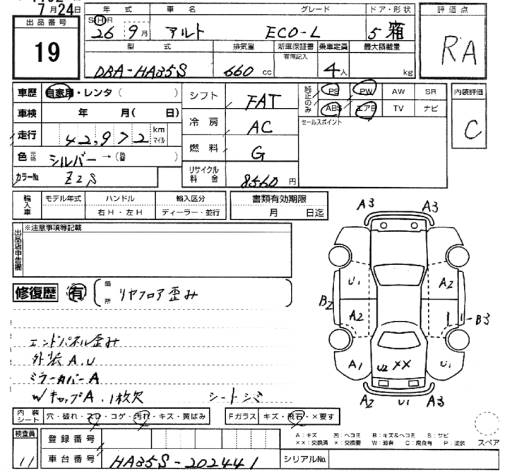 7月24日
出品番号 年式 車名 グレード ドア・形状 評価点
19 S H R 26年 9月 アルト ECO-L 5 箱 RA
型式 排気量 新車保証書 乗車定員 最大積載量
有無記入
DBA-HA35S 660cc 4人 kg
車歴 自家用・レンタ( ) シフト FAT 純正のみ PS PW AW SR 内装評価
ABS エアB TV ナビ C
車検 年 月( 日) 冷房 AC セールスポイント
走行 42,972 km マイル 燃料 G
色 シルバー→( ) リサイクル料金 8560円
カラーNo. Z2S
輸入車 モデル年式 ハンドル 輸入区分 書類有効期限
右H・左H ディーラー・並行 月 日迄
出品店申告欄 ※注意事項等記載
修復歴 有 箇所 リヤフロア歪み
エンドパネル歪み
外装A.U
ミラーカバーA
WキャップA.1枚欠 シートシミ
A3 A3
U1 A2
B2 A2 1-B3
A1 U2 XX U1
A2 U1 A3
内装シート 穴・破れ・スレ・コゲ・汚れ・キズ・黄ばみ Fガラス キズ・飛石・×要す
検査員 11 登録番号
車台番号 HA35S-202441 シリアルNo.
A:キズ U:ヘコミ B:キズ&ヘコミ S:サビ
XX:交換済 X:交換要 W:補修 C:腐食有 P:塗装 スペア